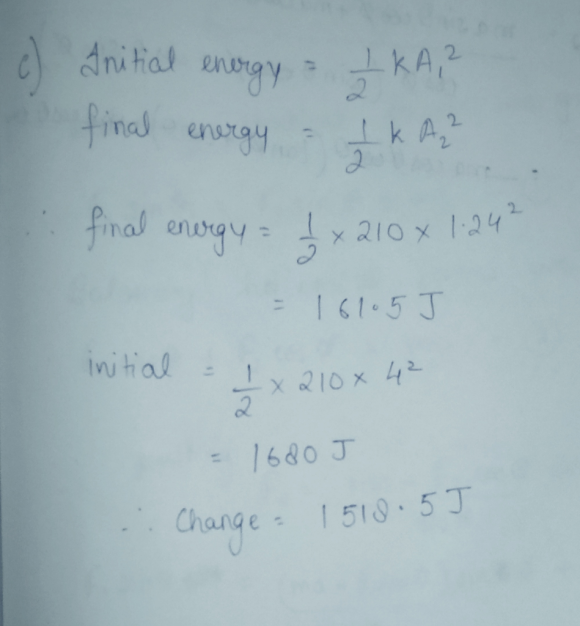 c) Initial energy = 1/2 kA₁²
final energy = 1/2 k A₂²
∴ final energy = 1/2 × 210 × 1.24²
= 161.5 J
initial = 1/2 × 210 × 4²
= 1680 J
∴ Change = 1518.5 J